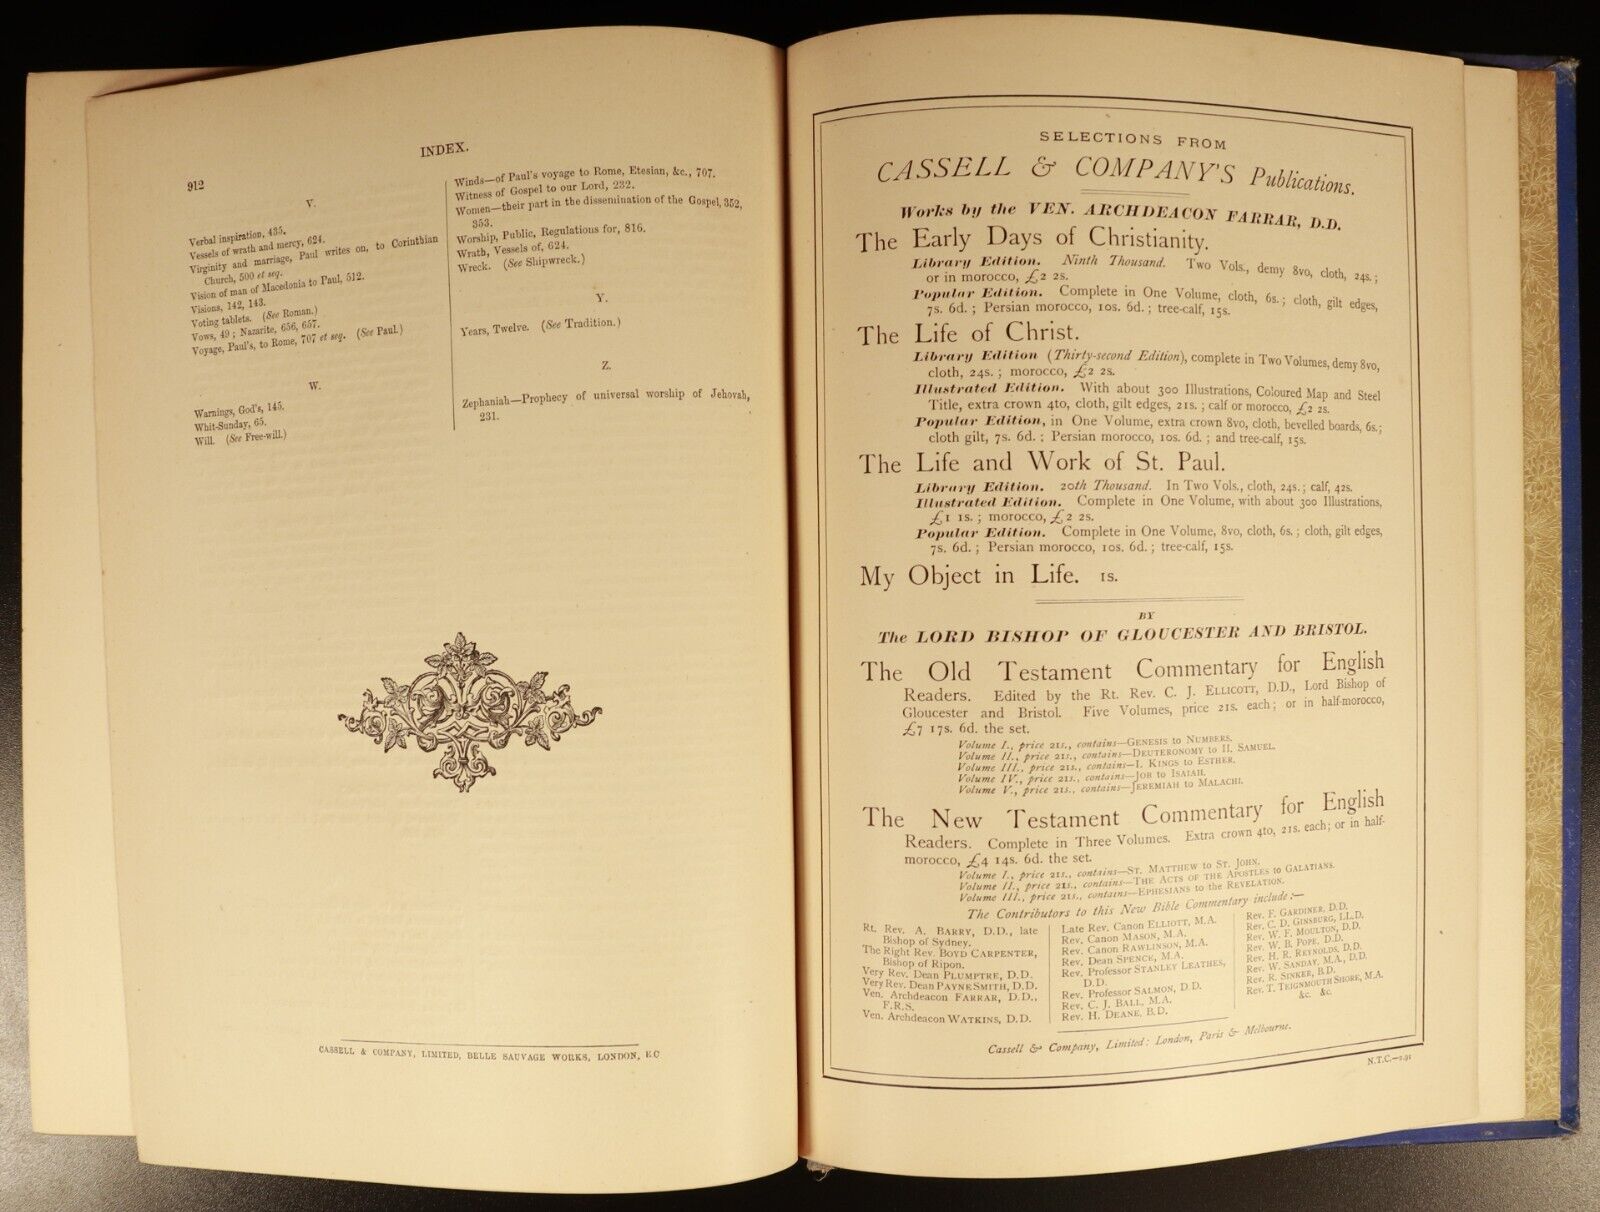 INDEX.
912
V.
Verbal inspiration, 435.
Vessels of wrath and mercy, 624.
Virginity and marriage, Paul writes on, to Corinthian
Church, 500 et seq.
Vision of man of Macedonia to Paul, 512.
Visions, 142, 143.
Voting tablets. (See Roman.)
Vows, 49; Nazarite, 656, 657.
Voyage, Paul's, to Rome, 707 et seq. (See Paul.)
W.
Warnings, God's, 145.
Whit-Sunday, 65.
Will. (See Free-will.)
Winds—of Paul's voyage to Rome, Etesian, &c., 707.
Witness of Gospel to our Lord, 232.
Women—their part in the dissemination of the Gospel, 352,
353.
Worship, Public, Regulations for, 816.
Wrath, Vessels of, 624.
Wreck. (See Shipwreck.)
Y.
Years, Twelve. (See Tradition.)
Z.
Zephaniah—Prophecy of universal worship of Jehovah,
231.
CASSELL & COMPANY, LIMITED, BELLE SAUVAGE WORKS, LONDON, E.C
SELECTIONS FROM
CASSELL & COMPANY'S Publications.
Works by the VEN. ARCHDEACON FARRAR, D.D.
The Early Days of Christianity.
Library Edition. Ninth Thousand. Two Vols., demy 8vo, cloth, 24s.;
or in morocco, £2 2s.
Popular Edition. Complete in One Volume, cloth, 6s.; cloth, gilt edges,
7s. 6d.; Persian morocco, 10s. 6d.; tree-calf, 15s.
The Life of Christ.
Library Edition (Thirty-second Edition), complete in Two Volumes, demy 8vo,
cloth, 24s.; morocco, £2 2s.
Illustrated Edition. With about 300 Illustrations, Coloured Map and Steel
Title, extra crown 4to, cloth, gilt edges, 21s.; calf or morocco, £2 2s.
Popular Edition, in One Volume, extra crown 8vo, cloth, bevelled boards, 6s.;
cloth gilt, 7s. 6d.; Persian morocco, 10s. 6d.; and tree-calf, 15s.
The Life and Work of St. Paul.
Library Edition. 20th Thousand. In Two Vols., cloth, 24s.; calf, 42s.
Illustrated Edition. Complete in One Volume, with about 300 Illustrations,
£1 1s.; morocco, £2 2s.
Popular Edition. Complete in One Volume, 8vo, cloth, 6s.; cloth, gilt edges,
7s. 6d.; Persian morocco, 10s. 6d.; tree-calf, 15s.
My Object in Life. 1s.
BY
The LORD BISHOP OF GLOUCESTER AND BRISTOL.
The Old Testament Commentary for English
Readers. Edited by the Rt. Rev. C. J. ELLICOTT, D.D., Lord Bishop of
Gloucester and Bristol. Five Volumes, price 21s. each; or in half-morocco,
£7 17s. 6d. the set.
Volume I., price 21s., contains—GENESIS to NUMBERS.
Volume II., price 21s., contains—DEUTERONOMY to II. SAMUEL.
Volume III., price 21s., contains—I. KINGS to ESTHER.
Volume IV., price 21s., contains—JOB to ISAIAH.
Volume V., price 21s., contains—JEREMIAH to MALACHI.
The New Testament Commentary for English
Readers. Complete in Three Volumes. Extra crown 4to, 21s. each; or in half-
morocco, £4 14s. 6d. the set.
Volume I., price 21s., contains—ST. MATTHEW to ST. JOHN.
Volume II., price 21s., contains—THE ACTS OF THE APOSTLES to GALATIANS.
Volume III., price 21s., contains—EPHESIANS to the REVELATION.
The Contributors to this New Bible Commentary include:—
Rt. Rev. A. BARRY, D.D., late
Bishop of Sydney.
The Right Rev. BOYD CARPENTER,
Bishop of Ripon.
Very Rev. Dean PLUMPTRE, D.D.
Very Rev. Dean PAYNE SMITH, D.D.
Ven. Archdeacon FARRAR, D.D.,
F.R.S.
Ven. Archdeacon WATKINS, D.D.
Late Rev. Canon ELLIOTT, M.A.
Rev. Canon MASON, M.A.
Rev. Canon RAWLINSON, M.A.
Rev. Dean SPENCE, M.A.
Rev. Professor STANLEY LEATHES,
D.D.
Rev. Professor SALMON, D.D.
Rev. C. J. BALL, M.A.
Rev. H. DEANE, B.D.
Rev. F. GARDINER, D.D.
Rev. C. D. GINSBURG, LL.D.
Rev. W. F. MOULTON, D.D.
Rev. W. B. POPE, D.D.
Rev. H. R. REYNOLDS, D.D.
Rev. W. SANDAY, M.A., D.D.
Rev. R. SINKER, B.D.
Rev. T. TEIGNMOUTH SHORE, M.A.
&c. &c.
Cassell & Company, Limited: London, Paris & Melbourne.
N.T.C.—1.91